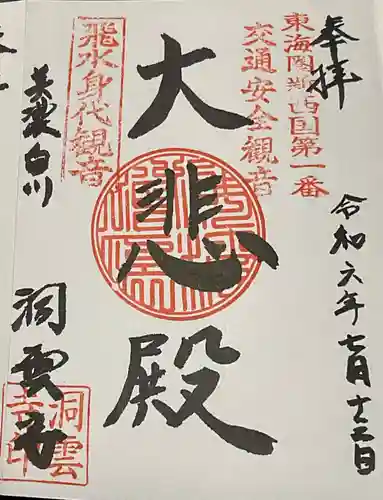 奉拝
令和六年七月十三日
東海圏新西国第一番
交通安全観音
大悲殿
飛水身代観音
美濃白川
洞雲寺
洞雲寺印